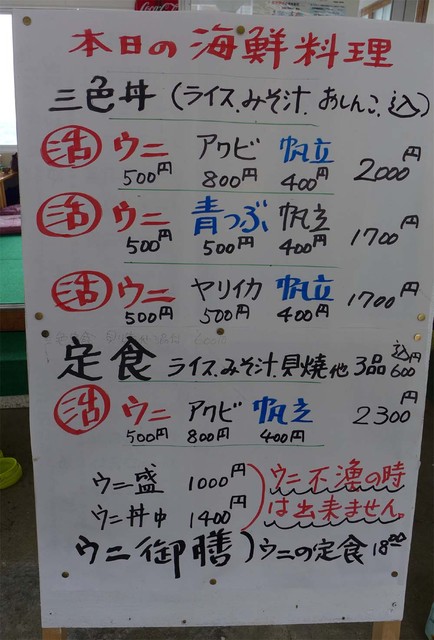 Coca-Cola
本日の海鮮料理
三色丼 (ライス、みそ汁、おしんこ、込)
活 ウニ アワビ 帆立 2000円
500円 800円 400円
活 ウニ 青つぶ 帆立 1700円
500円 500円 400円
活 ウニ ヤリイカ 帆立 1700円
500円 500円 400円
定食 ライス、みそ汁、貝焼他3品込600円
活 ウニ アワビ 帆立 2300円
500円 800円 400円
ウニ盛 1000円
ウニ丼中 1400円
ウニ不漁の時
は出来ません。
ウニ御膳)ウニの定食1800